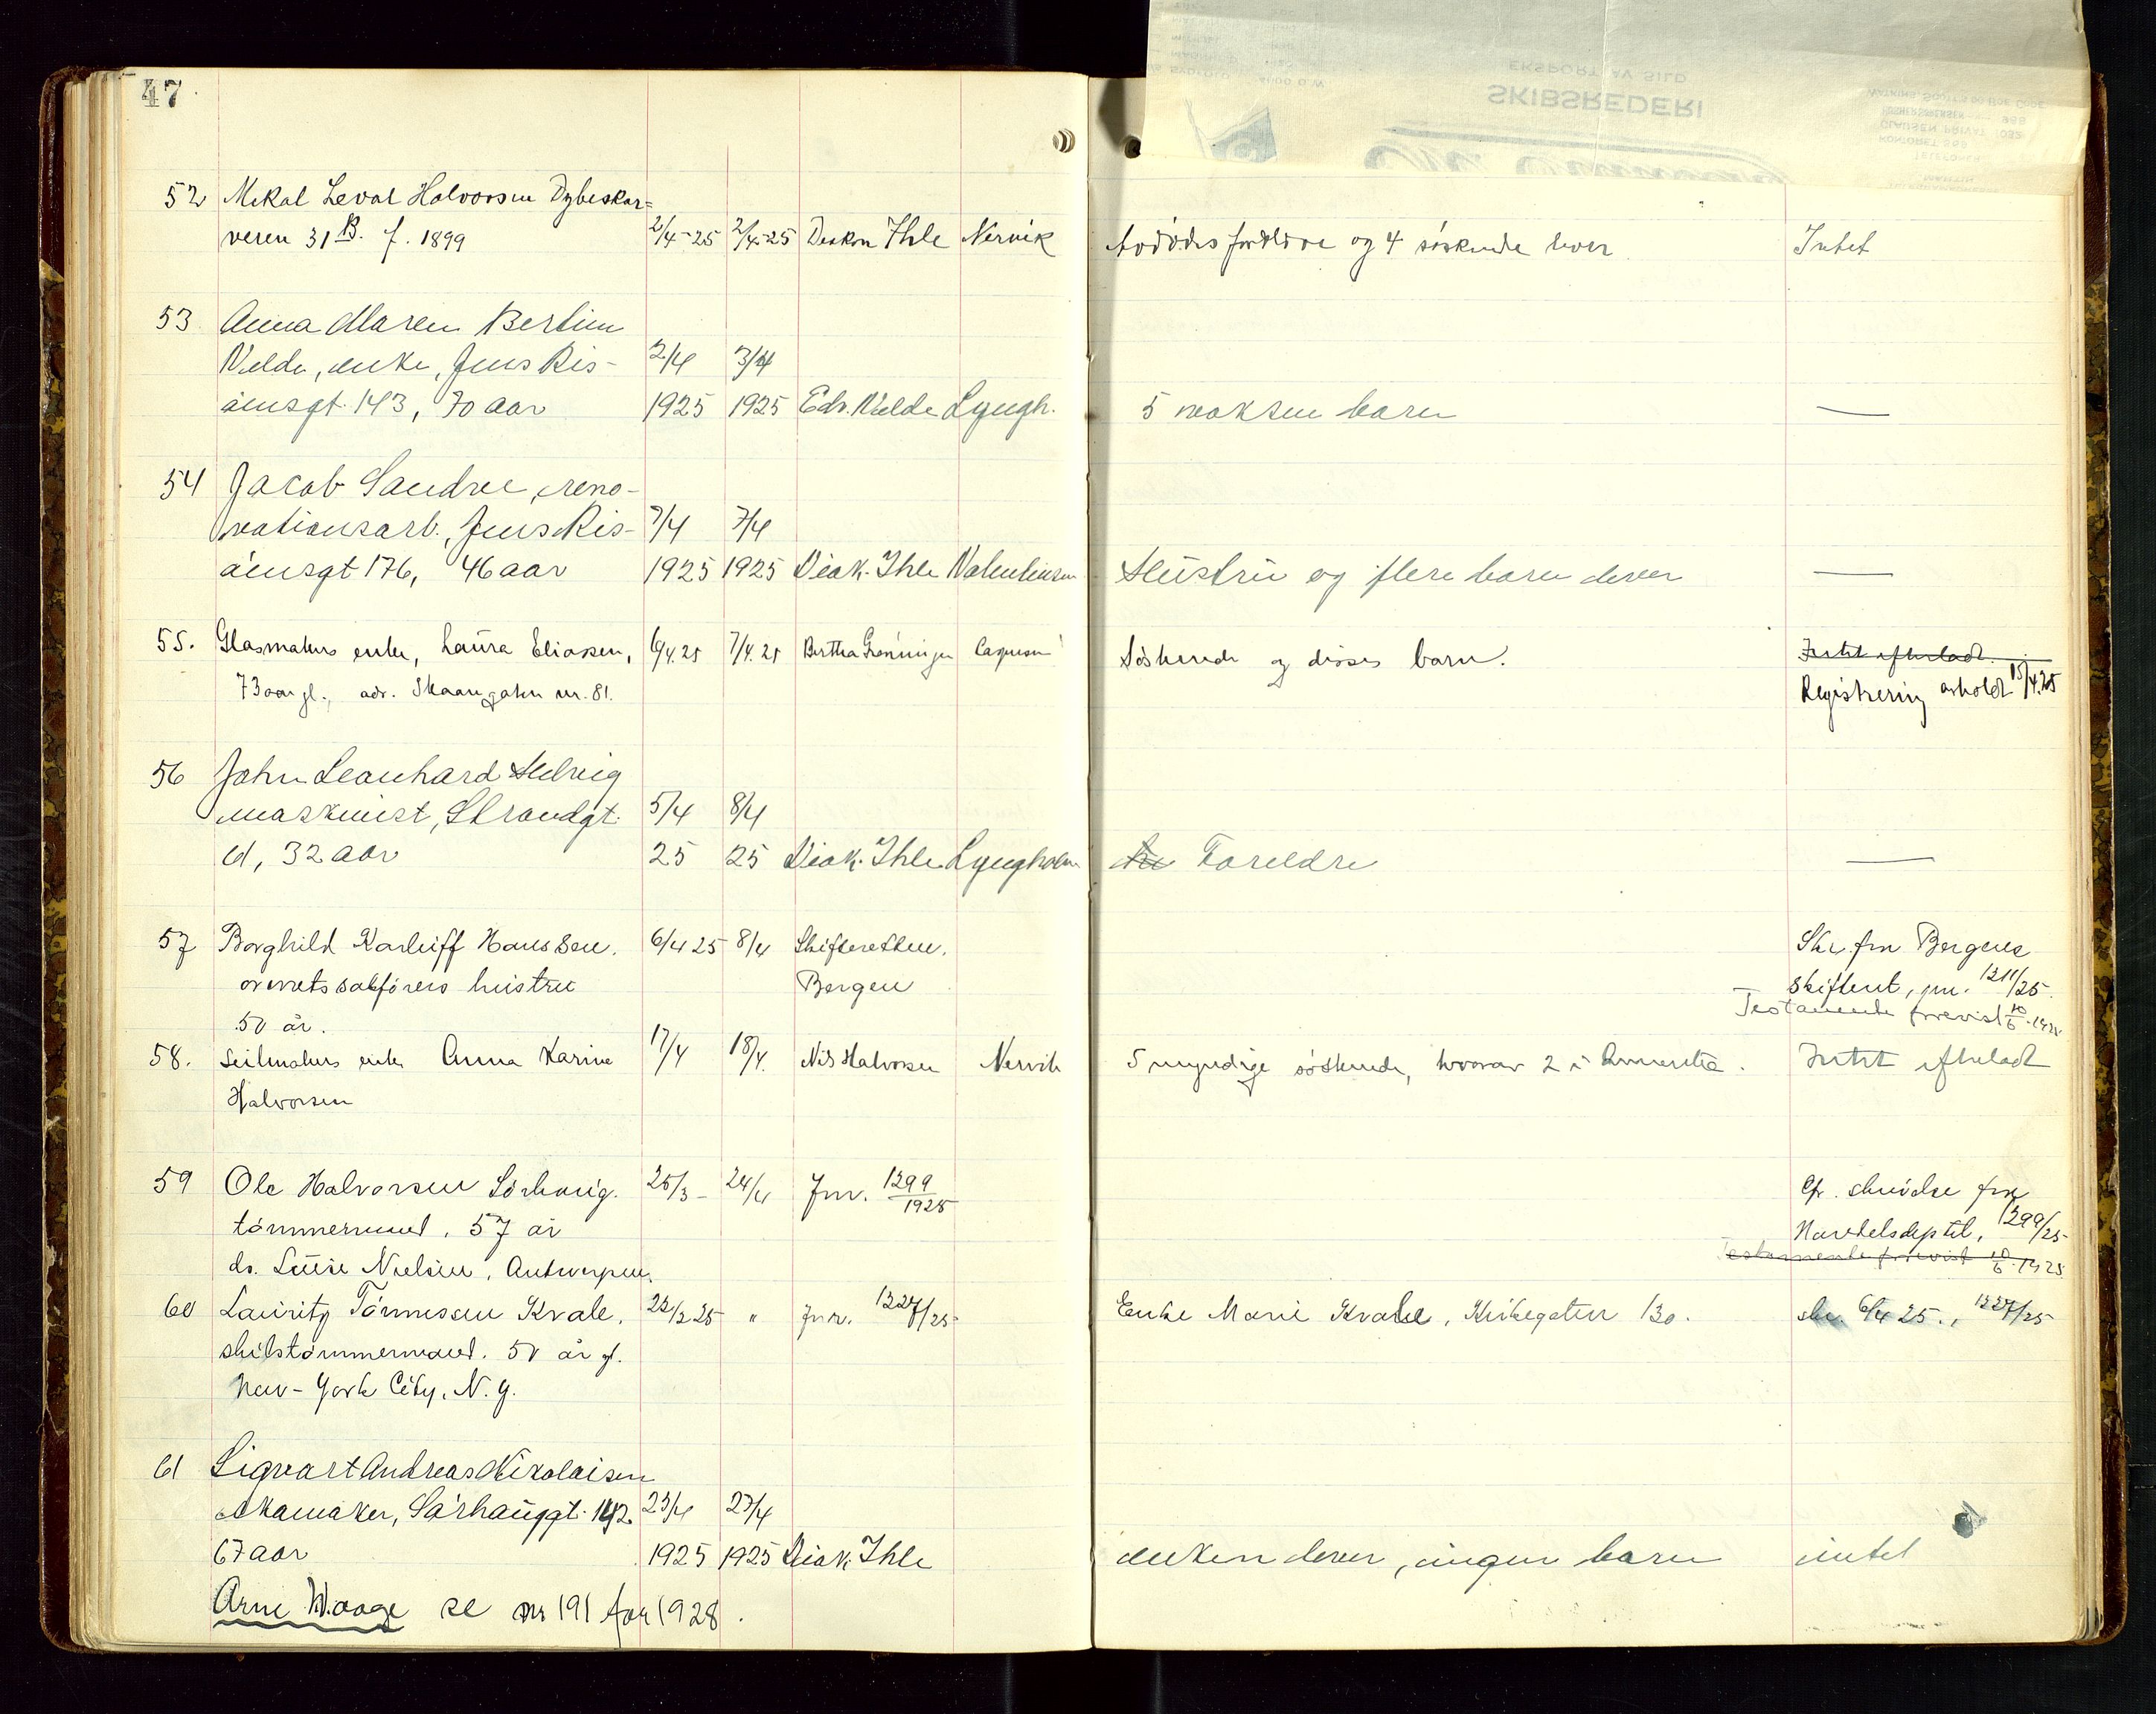 47
52 Mikal Leval Halvorsen Dybeskar=
veren 31 B. f. 1899 2/4-25 2/4-25 Deakon Ihle Nervik og 4 søskende lever Intet
53 Anna Maren Bertine
Velde, enke, Jens Ris-
åensgt. 143, 70 aar
2/4 1925 3/4 1925 Edv. Velde Lyngh. 5 voksne barn —
54 Jacob Sandve, reno-
vationsarb., Jens Ris-
åensgt 176, 46 aar
7/4 1925 7/4 1925 Diak. Ihle Valentinsen Hustru og flere barn lever —
55. Glasmakers enke, Laura Eliassen, 6/4.25 7/4.25 Bertha Grønningen Søskende og disses barn. Intet efterladt.
73 aar gl., adr. Skaangaten nr. 81. Registrering avholdt 15/4.25
56 John Leonhard Helvig
maskinist, Strandgt.
61, 32 aar
5/4 25 8/4 25 Diak. Ihle Lyngholm Foreldre —
57 Borghild Hanssen. 6/4 25 8/4 Skifteretten. Skr. fra Bergens
overretssakførers hustru Bergen skifteret, jnr. 1211/25.
50 år. Testamente forevist 10/6.1925
58. Seilmakers enke Anna Karine 17/4 18/4. Nils Halvorsen Nervik 5 myndige søskende, hvorav 2 i Amerika. Intet efterladt
Halvorsen
59 Ole Halvorsen Sørhaug. 25/3- 24/4 Jnr. 1299/1925 Cfr. skrivelse fra
tømmermand, 57 år Handelsdeptet, 1299/25
ds. Luise Nielsen, Antwerpen. Testamente forevist 10/6.1925
60 Lauritz Tønnessen Kvale, 22/3 25 " Jnr. 1227/25 Enke Marie Kvale, Kirkegaten 130. skr. 6/4 25., 1227/25
skibstømmermand. 50 år gl.
New-York City, N.Y.
61 Sigvart Andreas Nikolaisen
skomaker, Sørhauggt. 142.
67 aar
23/4 1925 27/4 1925 Diak. Ihle enken lever, ingen barn intet
Arne Waage se nr 191 for 1928.
SKIBSREDERI
EKSPORT AV SILD